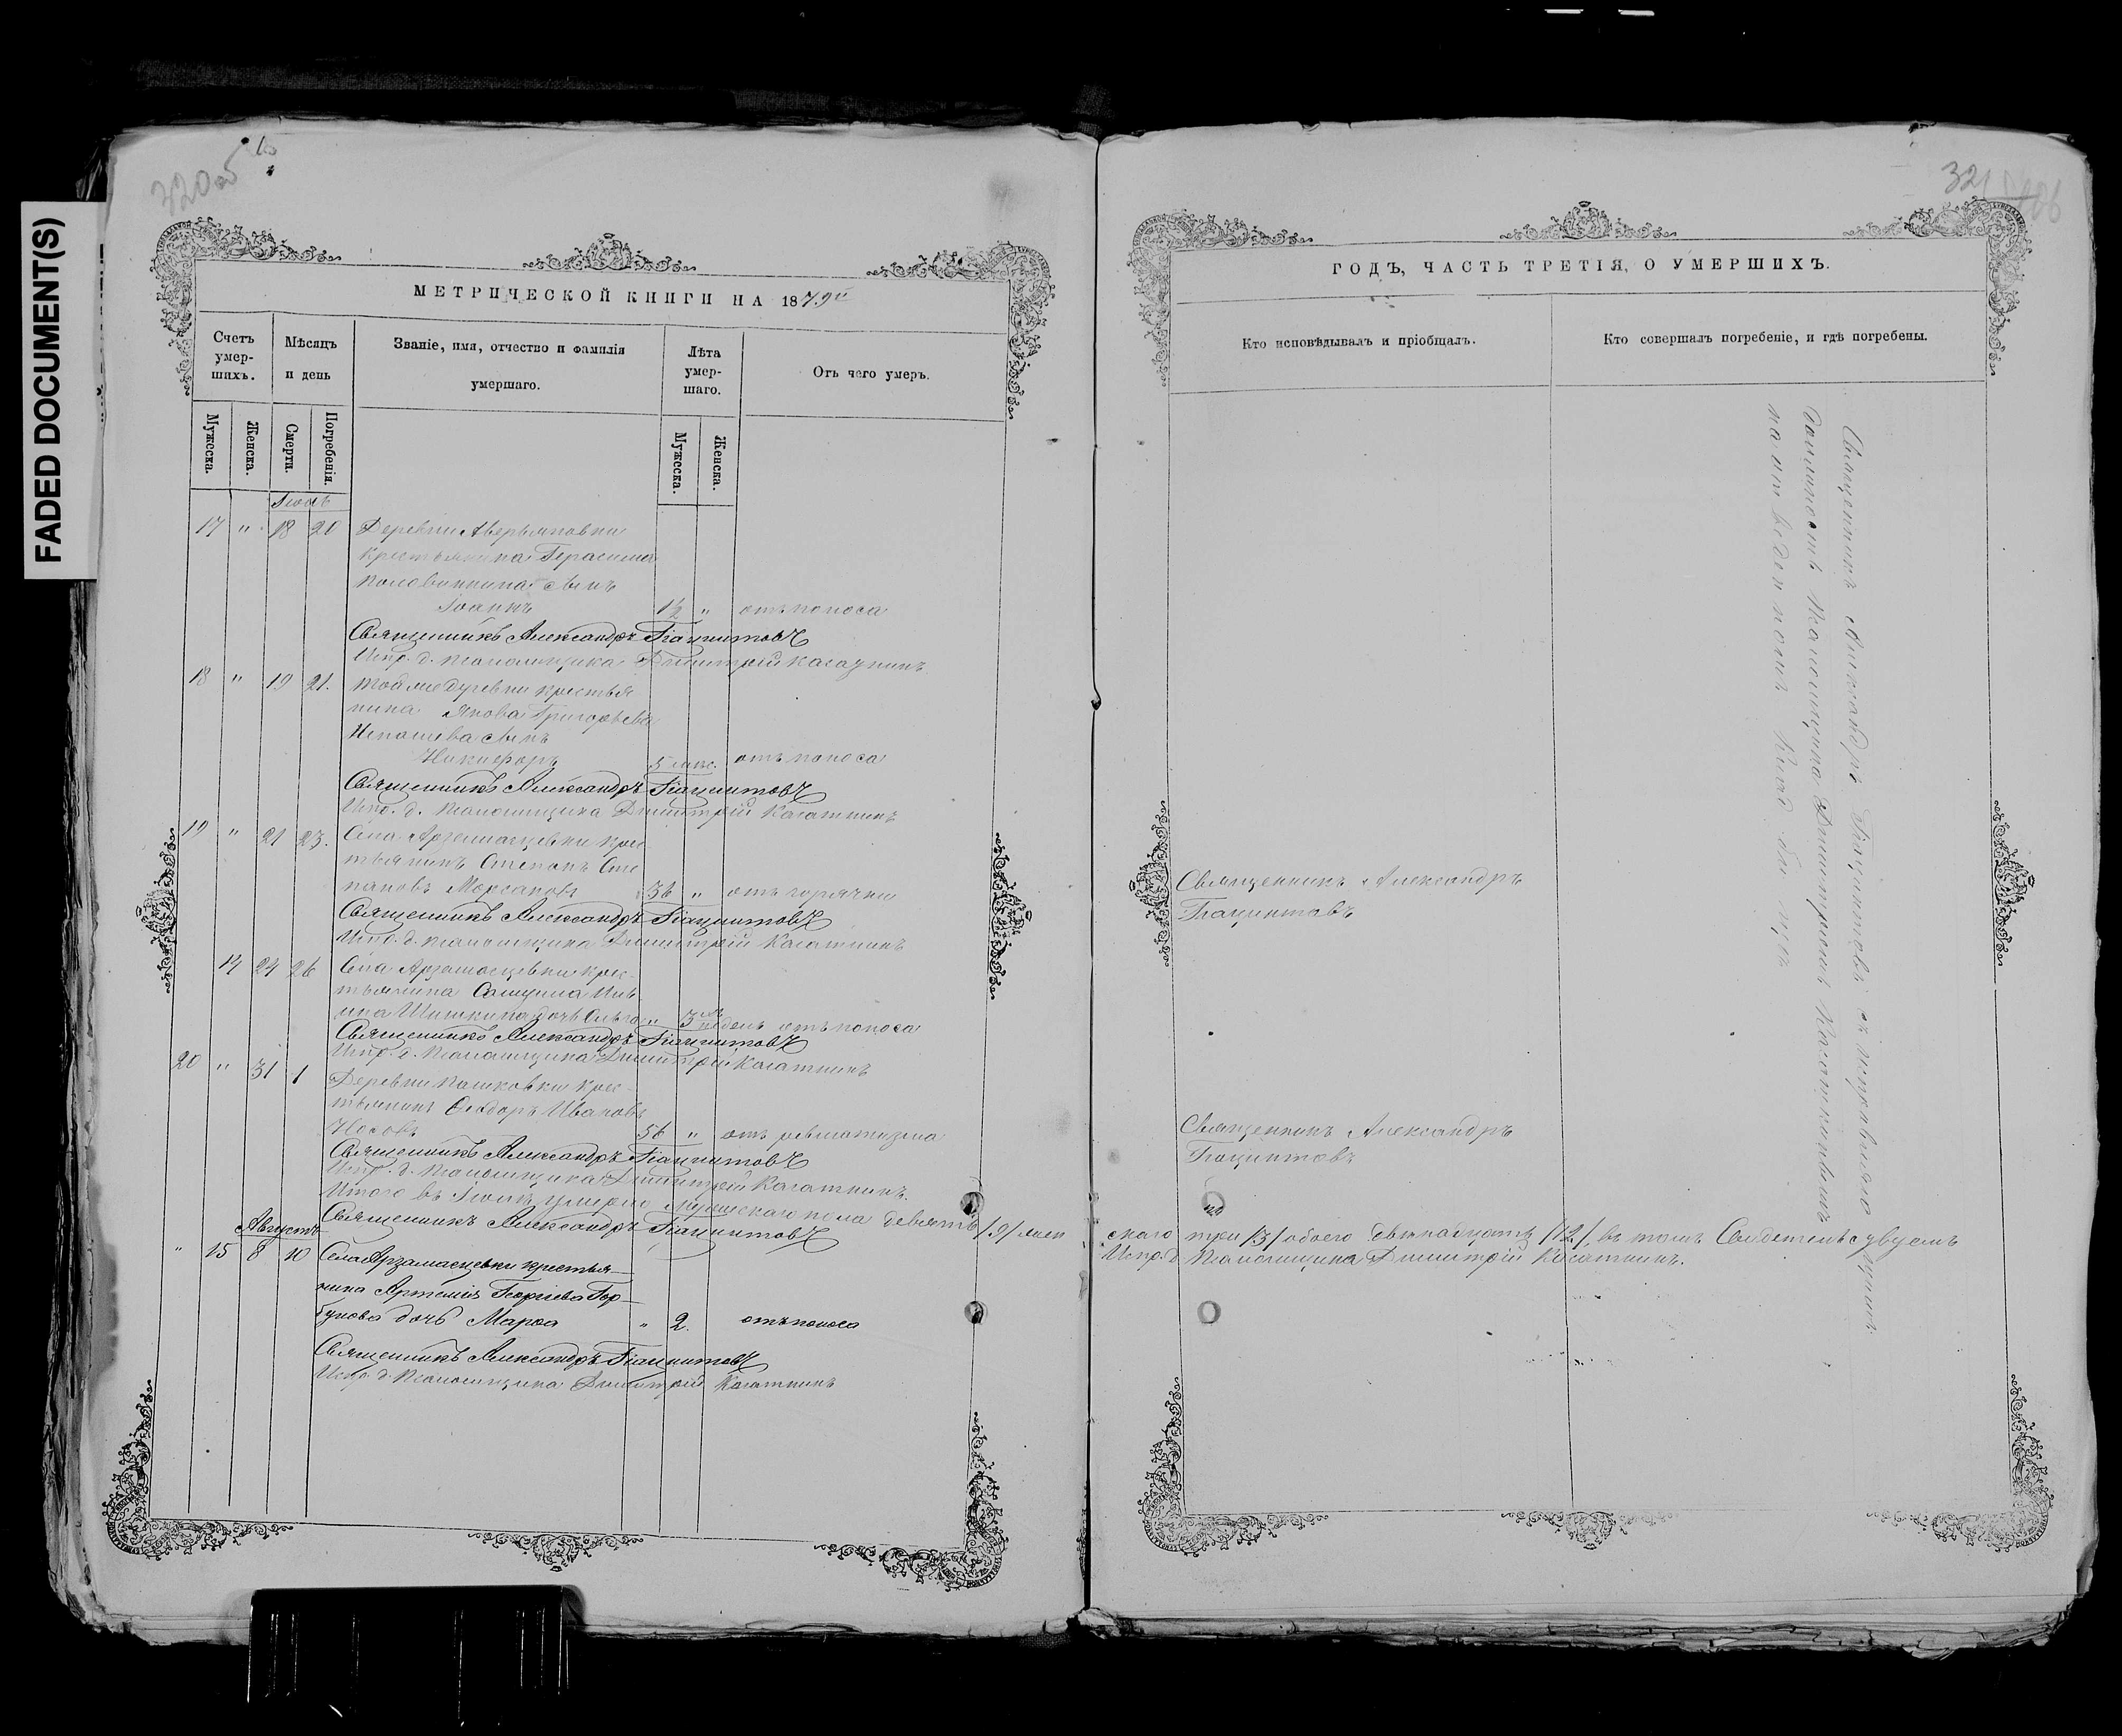 FADED DOCUMENT(S)
320 об
МЕТРИЧЕСКОЙ КНИГИ НА 1879й
Счетъ умер-шихъ.
Мѣсяцъ и день
Званіе, имя, отчество и фамилія умершаго.
Лѣта умер-шаго.
Отъ чего умеръ.
Мужеска.
Женска.
Смерти.
Погребенія.
Мужеска.
Женска.
Іюль
17 " 18 20 Деревни Аверьяновки
крестьянина Герасима
Половинкина сынъ
Іоаннъ 1½ " отъ поноса
Священникъ Александръ Гіацинтовъ
Испр. д. псаломщика Димитрій Касаткинъ
18 " 19 21. Той же деревни крестья
нина Якова Григорьева
сынъ
Никифоръ 5 мѣс. отъ поноса
Священникъ Александръ Гіацинтовъ
Испр. д. псаломщика Димитрій Касаткинъ
19 " 21 23. Села Арзамасцевки крес
тьянинъ Степанъ Сте
пановъ 36 " отъ горячки
Священникъ Александръ Гіацинтовъ
Испр. д. псаломщика Димитрій Касаткинъ
14 24 26 Села Арзамасцевки крес-
тьянина
Шишкина дочь Ольга " 3 недѣль отъ поноса
Священникъ Александръ Гіацинтовъ
Испр. д. псаломщика Димитрій Касаткинъ
20 " 31 1 Деревни Пашковки крес-
тьянинъ Ѳеодоръ Ивановъ
Носовъ 56 " отъ ревматизма
Священникъ Александръ Гіацинтовъ
Испр. д. псаломщика Димитрій Касаткинъ.
Итого въ Іюлѣ умерло мужескаго пола девять /9/ жен
Священникъ Александръ Гіацинтовъ
Августъ
" 15 8 10 Села Арзамасцевки крестья-
нина Артемія Георгіева Гор-
бунова дочь Марѳа " 2. отъ поноса
Священникъ Александръ Гіацинтовъ
Испр. д. псаломщика Димитрій Касаткинъ
321
ГОДЪ, ЧАСТЬ ТРЕТІЯ, О УМЕРШИХЪ.
Кто исповѣдывалъ и пріобщалъ.
Кто совершалъ погребеніе, и гдѣ погребены.
Священникъ Александръ Гіацинтовъ съ исправляю
должность псаломщика Димитріемъ Касаткинымъ
на отведенномъ кладбищѣ
Священникъ Александръ
Гіацинтовъ
Священникъ Александръ
Гіацинтовъ
скаго три /3/ обоего двѣнадцать /12/, въ томъ
Испр. д. псаломщика Димитрій Касаткинъ.